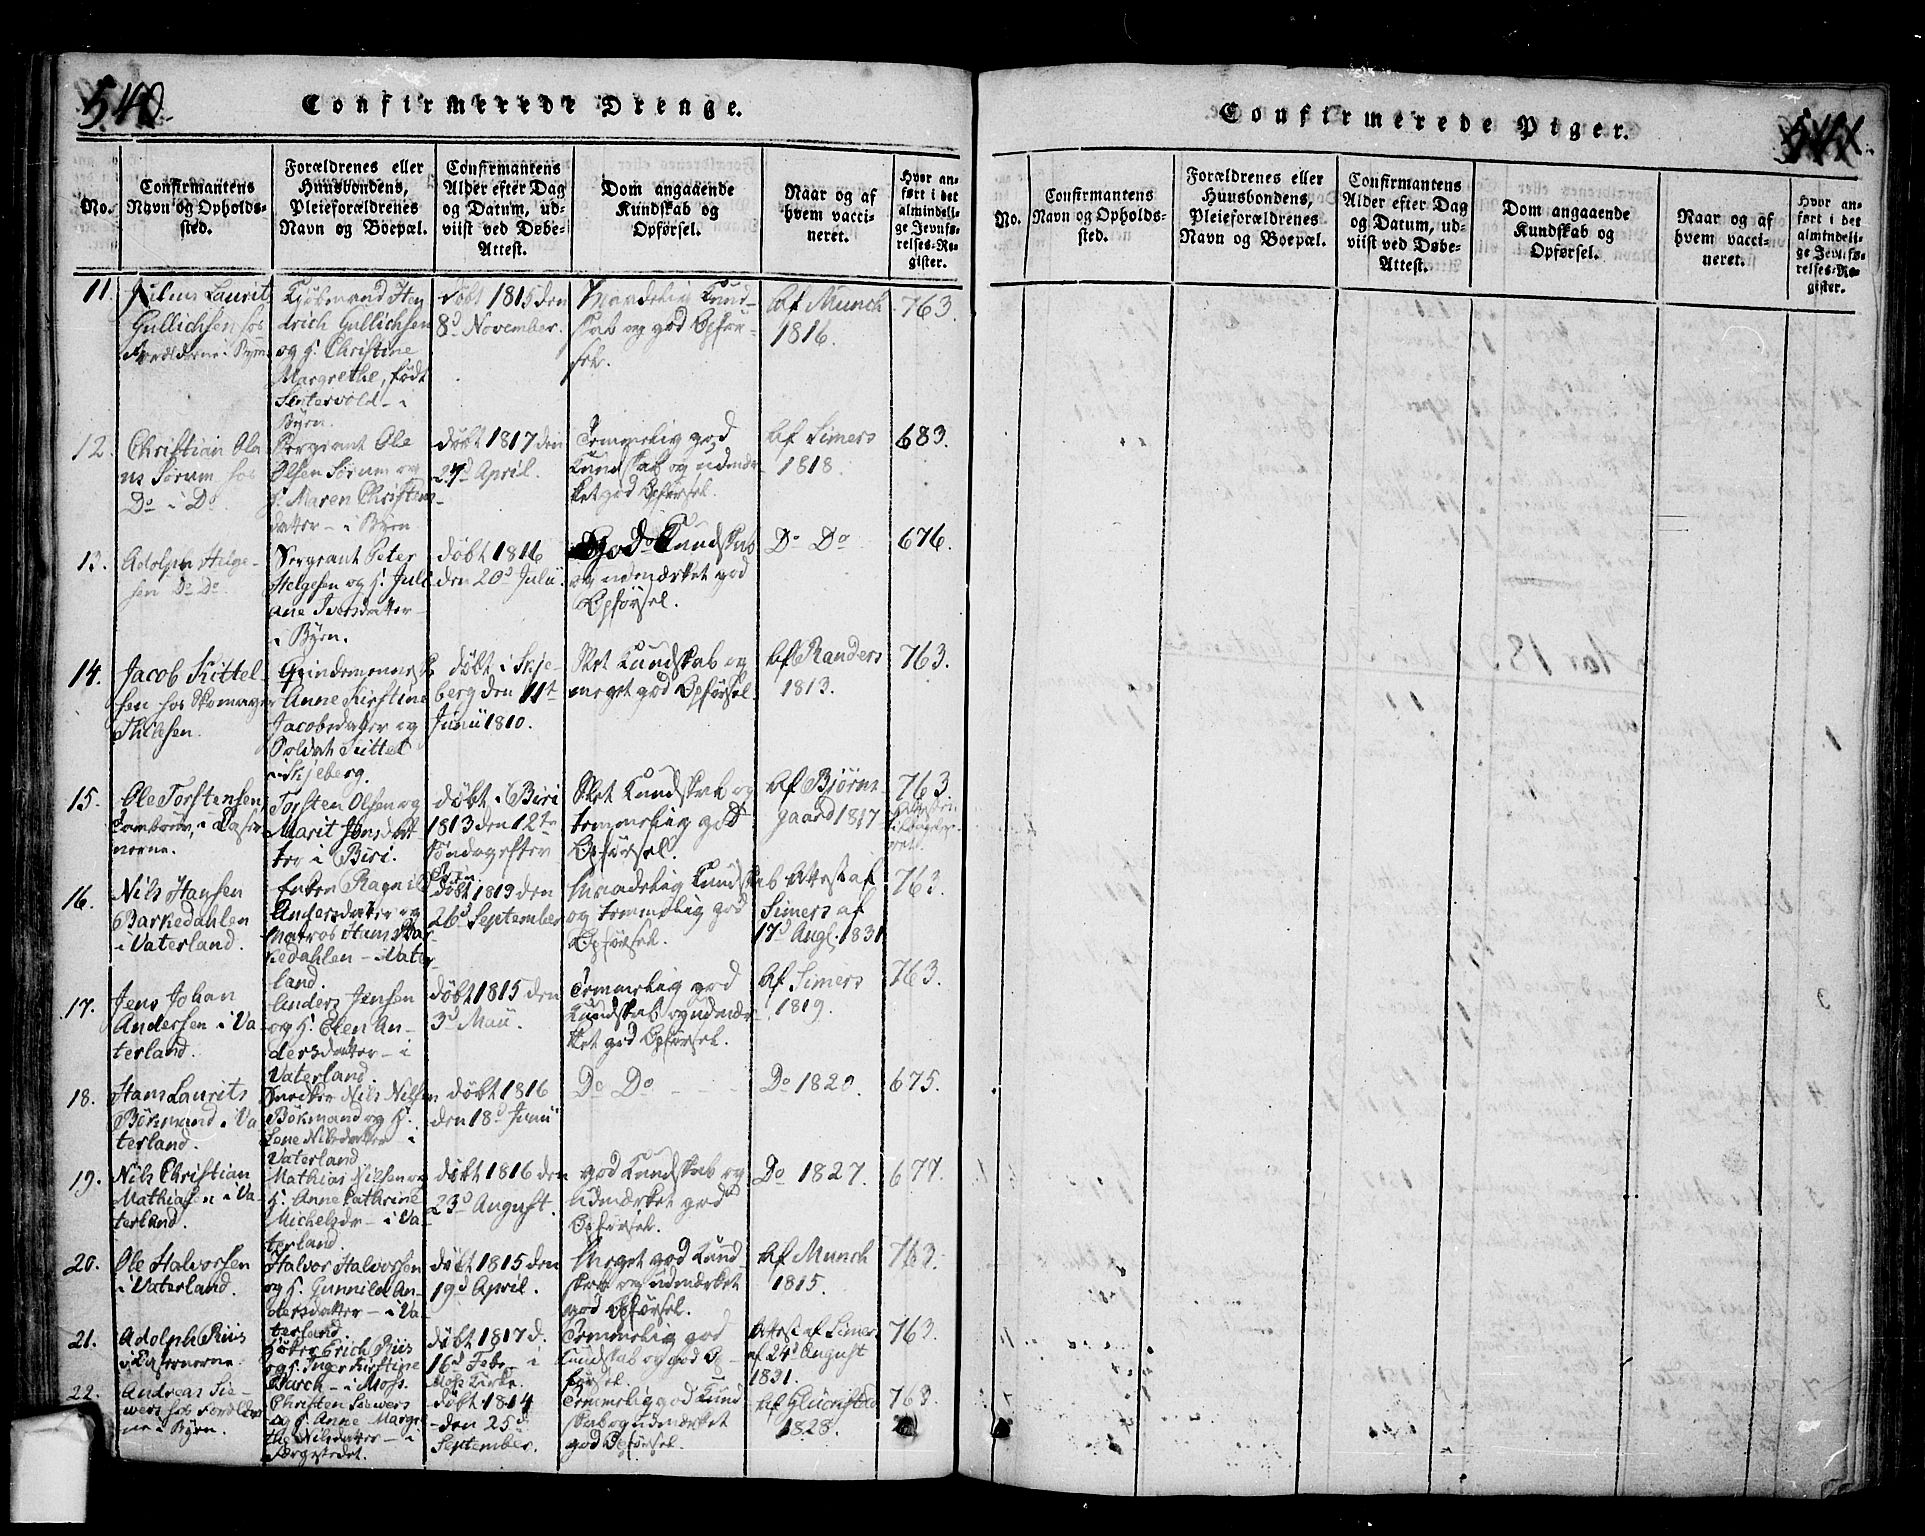 540
Confirmerede Drenge.
No.
Confirmantens
Navn og Opholds-
sted.
Forældrenes eller
Huusbondens,
Pleieforældrenes
Navn og Boepæl.
Confirmantens
Alder efter Dag
og Datum, ud-
viist ved Døbe-
Attest.
Dom angaaende
Kundskab og
Opførsel.
Naar og af
hvem vacci-
neret.
Hvor an-
ført i det
almindeli-
ge Jevnfø-
relses-Re-
gister.
11.
Laurits
Gullichsen hos
Forældrene i Byen
Kjøbmand Hen
drich Gullichsen
og H. Christine
Margrethe, født
i
Byen.
døbt 1815 den
8d November.
Maadelig Kund-
skab og god Opfør-
sel.
af Munch
1816.
763.
12.
Christian Ola
us Sørum hos
Do i Do
Sergeant Ole
Olsen Sørum og
H. Maren Christens
datter - i Byen
døbt 1817 den
27d April.
Temmelig god
Kundskab og udmær-
ket god Opførsel.
af Simers
1818.
683.
13.
Adolph Helge-
sen Do Do
Sergeant Peter
Helgesen og H. Juli
ane Iversdatter -
i Byen.
døbt 1816
den 20d Julii.
God Kundskab
og udmærket god
Opførsel.
Do Do
676.
14.
Jacob Kittel
sen hos Skomager
Thilesen.
Qvindemenneske
Anne Kirstine
Jacobsdatter og
Soldat Kittel
i Skjeberg.
døbt i Skje
berg den 11te
Junii 1810.
Slet Kundskab og
meget god Opførsel
af Randers
1813.
763.
15.
Ole Torstensen,
Tambour, i Caser
nerne.
Torsten Olsen og
Marit Jensdat
ter i Biri.
døbt i Biri
1813 den 12te
Søndag efter
Slet Kundskab og
temmelig god
Opførsel.
af Bjørns
gaard 1817
763.
16.
Nils Hansen
Barkedahlen
i Vaterland.
Enken Ragnild
Andersdatter og
Matros Hans Bar
kedahlen - i Vater
land.
døbt 1813 den
26d September
Maadelig Kundskab
og temmelig god
Opførsel.
Attest af
Simers af
17d Aug. 1831
763.
17.
Jens Johan
Andersen i Va
terland.
Anders Jensen
og H. Elen An-
dersdatter - i
Vaterland.
døbt 1815 den
3d Maii.
Temmelig god
Kundskab og udmær-
ket god Opførsel.
af Simers
1819.
763.
18.
Hans Laurits
Bökmand i Va
terland.
Snedker Nils Nilsen
Bökmand og H.
Lene Nilsdatter - i
Vaterland
døbt 1816
den 18d Junii
Do Do
Do 1820.
675.
19.
Nils Christian
Mathiasen i Va
terland.
Mathias Nilsen og
H. Anne Cathrine
Michelsdr - i Va
terland
døbt 1816 den
23d August.
god Kundskab og
udmærket god
Opførsel.
Do 1827.
677.
20.
Ole Halvorsen
i Vaterland.
Halvor Halvorsen
og H. Gunnild An-
dersdatter - i Va
terland
døbt 1815 den
19d April.
Meget god Kund-
skab og udmærket
god Opførsel.
af Munch
1815.
763.
21.
Adolph Riis
i Casernerne.
Erich Riis
og H. Inger Kirstine
Burch - i Moss.
døbt 1817 d.
16d Febr - i
Moss Kirke.
Temmelig god
Kundskab og god Op-
førsel.
Attest af Simers
af 24d August
1831.
763.
22.
Andreas Sie-
wers hos Forældre
ne i Byen.
Christen Siewers
og H. Anne Margre
the Nilsdatter - i
Færgestedet.
døbt 1814
den 25d
September.
Temmelig god Kund
skab og udmærket
god Opførsel.
af Glückstad
1828.
763.
541
Confirmerede Piger.
No.
Confirmantens
Navn og Opholds-
sted.
Forældrenes eller
Huusbondens,
Pleieforældrenes
Navn og Boepæl.
Confirmantens
Alder efter Dag
og Datum, ud-
viist ved Døbe-
Attest.
Dom angaaende
Kundskab og
Opførsel.
Naar og af
hvem vacci-
neret.
Hvor an-
ført i det
almindeli-
ge Jevnfø-
relses-Re-
gister.